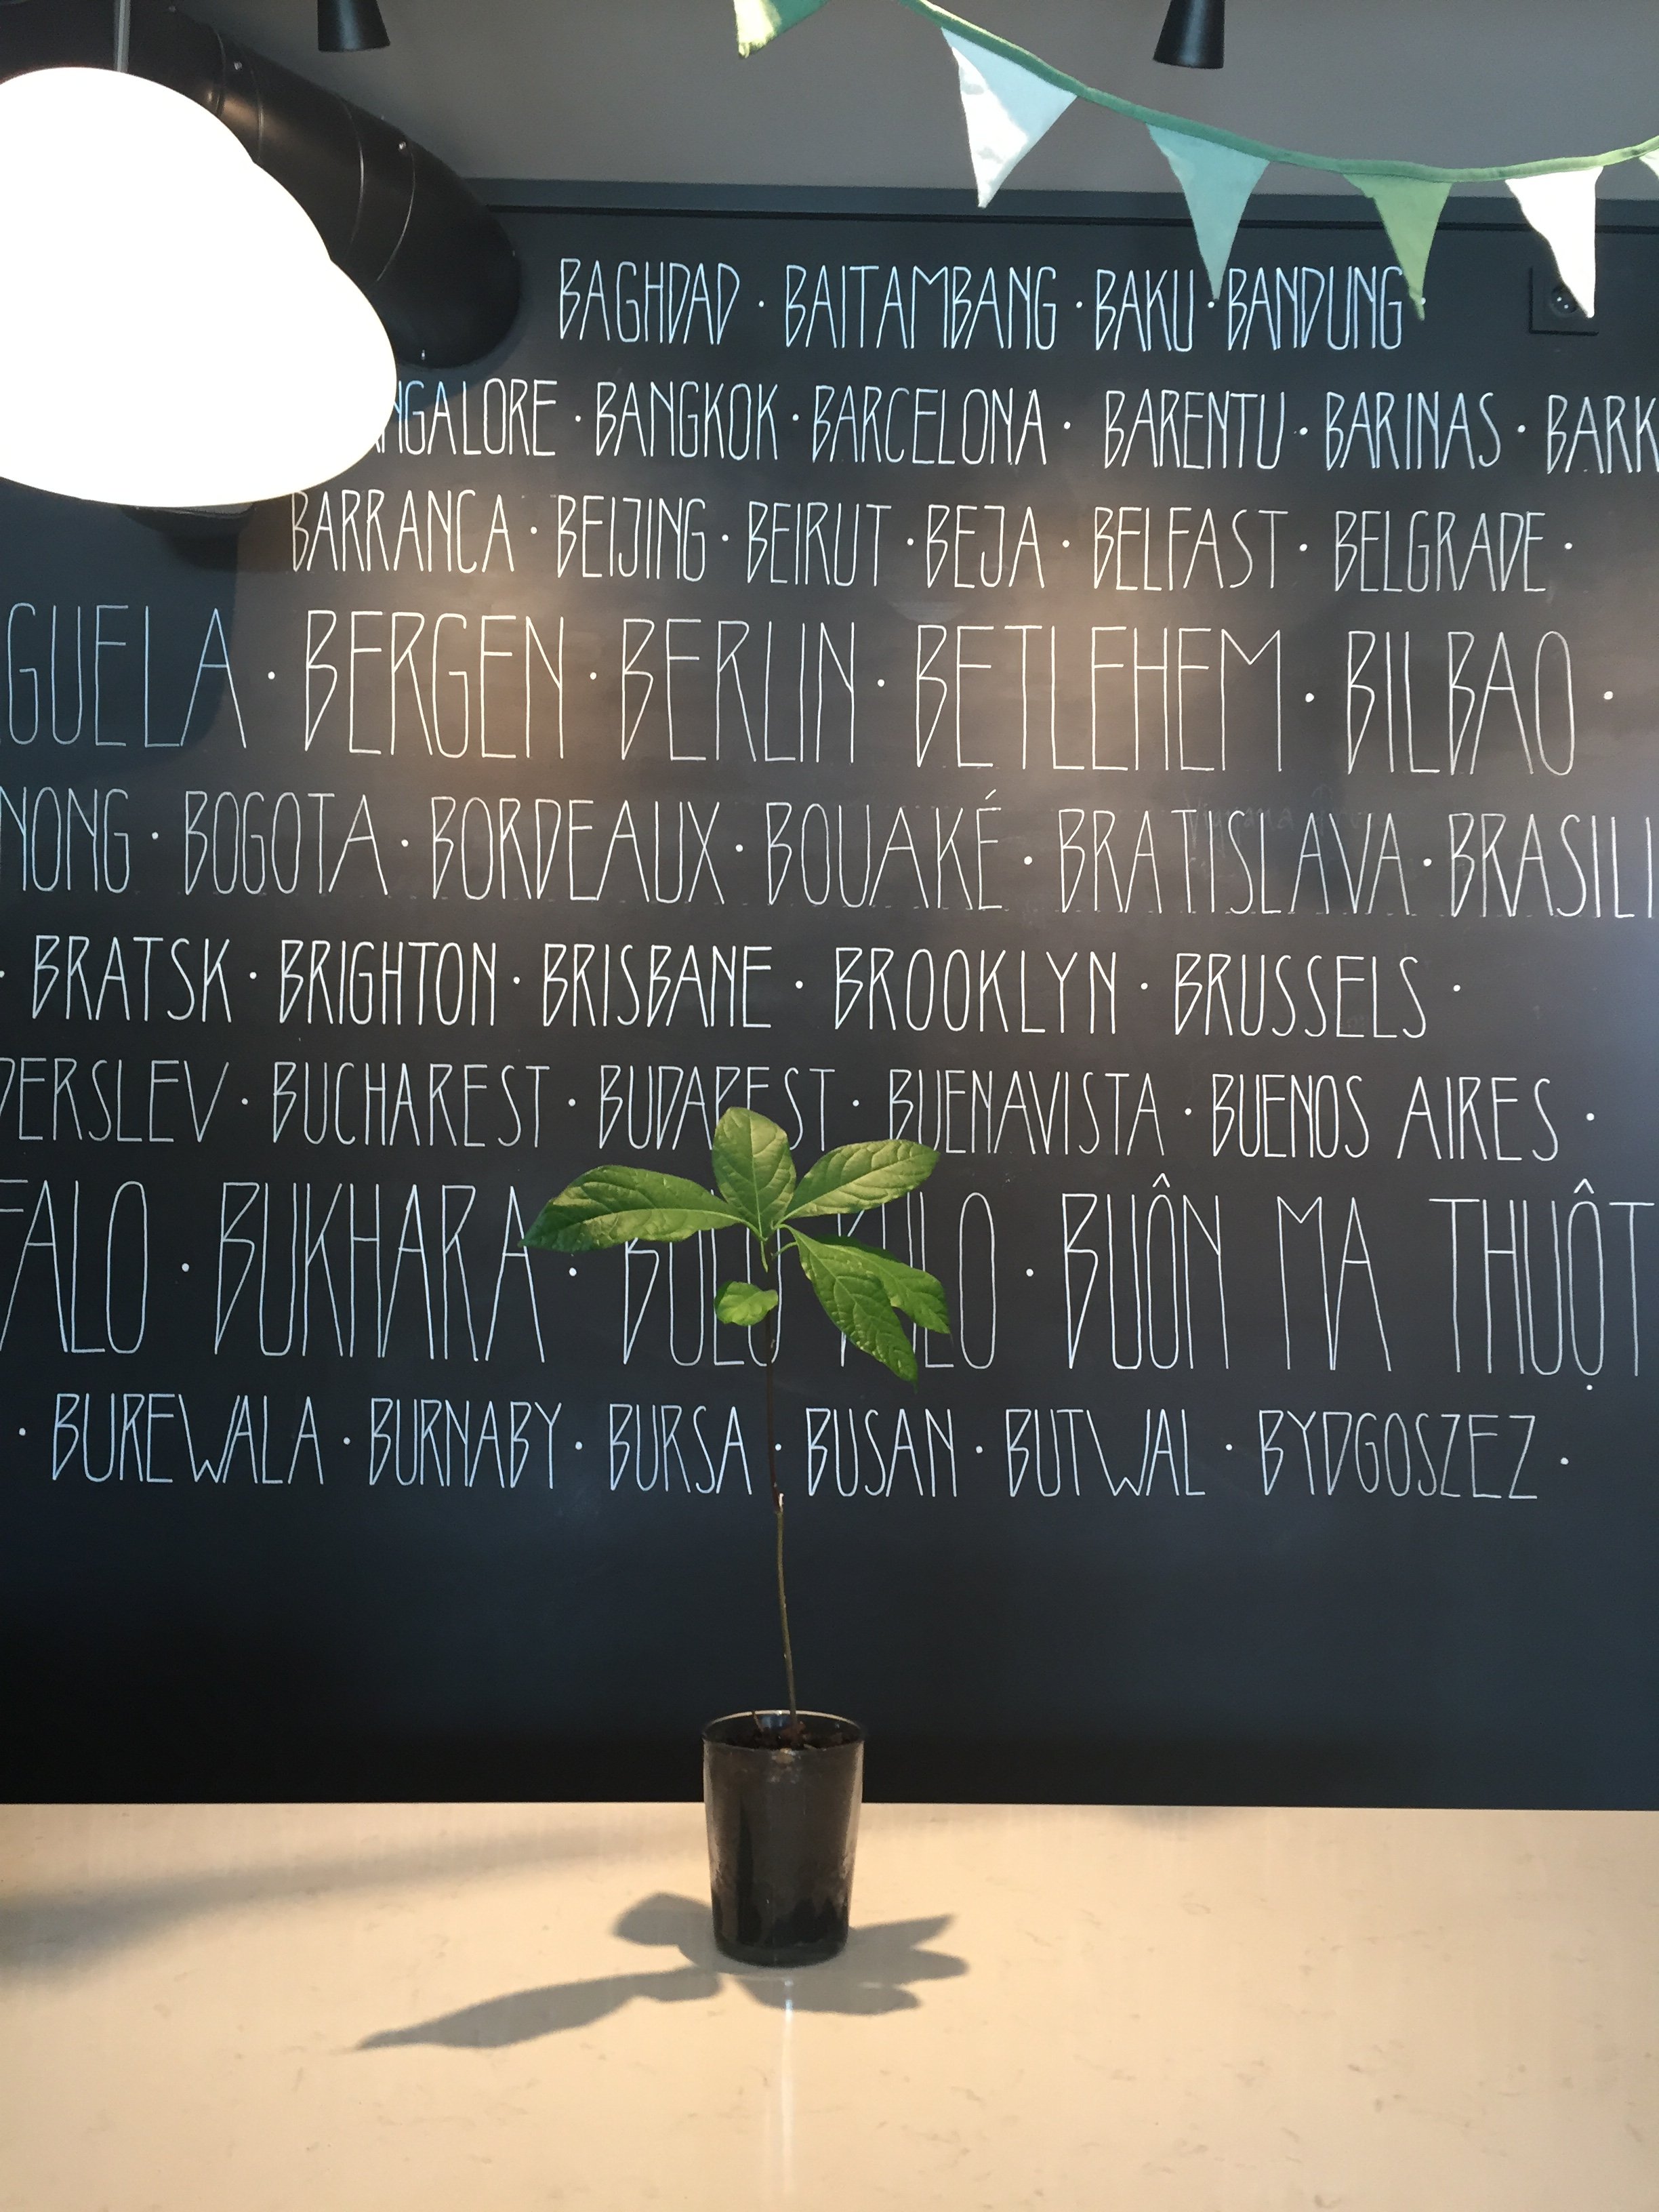 BAGHDAD · BAITAMBANG · BAKU · BANDUNG ·
NGALORE · BANGKOK · BARCELONA · BARENTU · BARINAS · BARK
BARRANCA · BEIJING · BEIRUT · BEJA · BELFAST · BELGRADE ·
GUELA · BERGEN · BERLIN · BETLEHEM · BILBAO ·
NONG · BOGOTA · BORDEAUX · BOUAKÉ · BRATISLAVA · BRASILI
· BRATSK · BRIGHTON · BRISBANE · BROOKLYN · BRUSSELS ·
DERSLEV · BUCHAREST · BUDAPEST · BUENAVISTA · BUENOS AIRES ·
FALO · BUKHARA · BULO · BUÔN MA THUỘT
· BUREWALA · BURNABY · BURSA · BUSAN · BUTWAL · BYDGOSZEZ ·